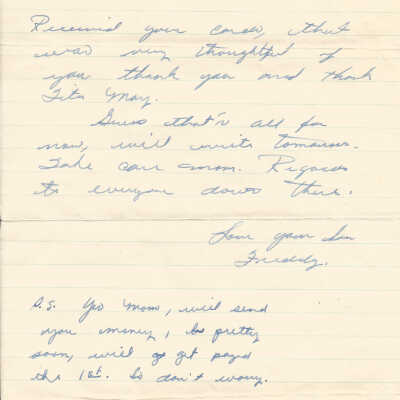 Received your cards, that
was very thoughtful of
you thank you and thank
Tita Mary.
Guess that's all for
now, will write tomorrow.
Take care mom. Regards
to everyone down there.
Love your Son
Freddy.
P.S. Yes Mom, will send
you money, be pretty
soon, will go get payed
the 1st. So don't worry.